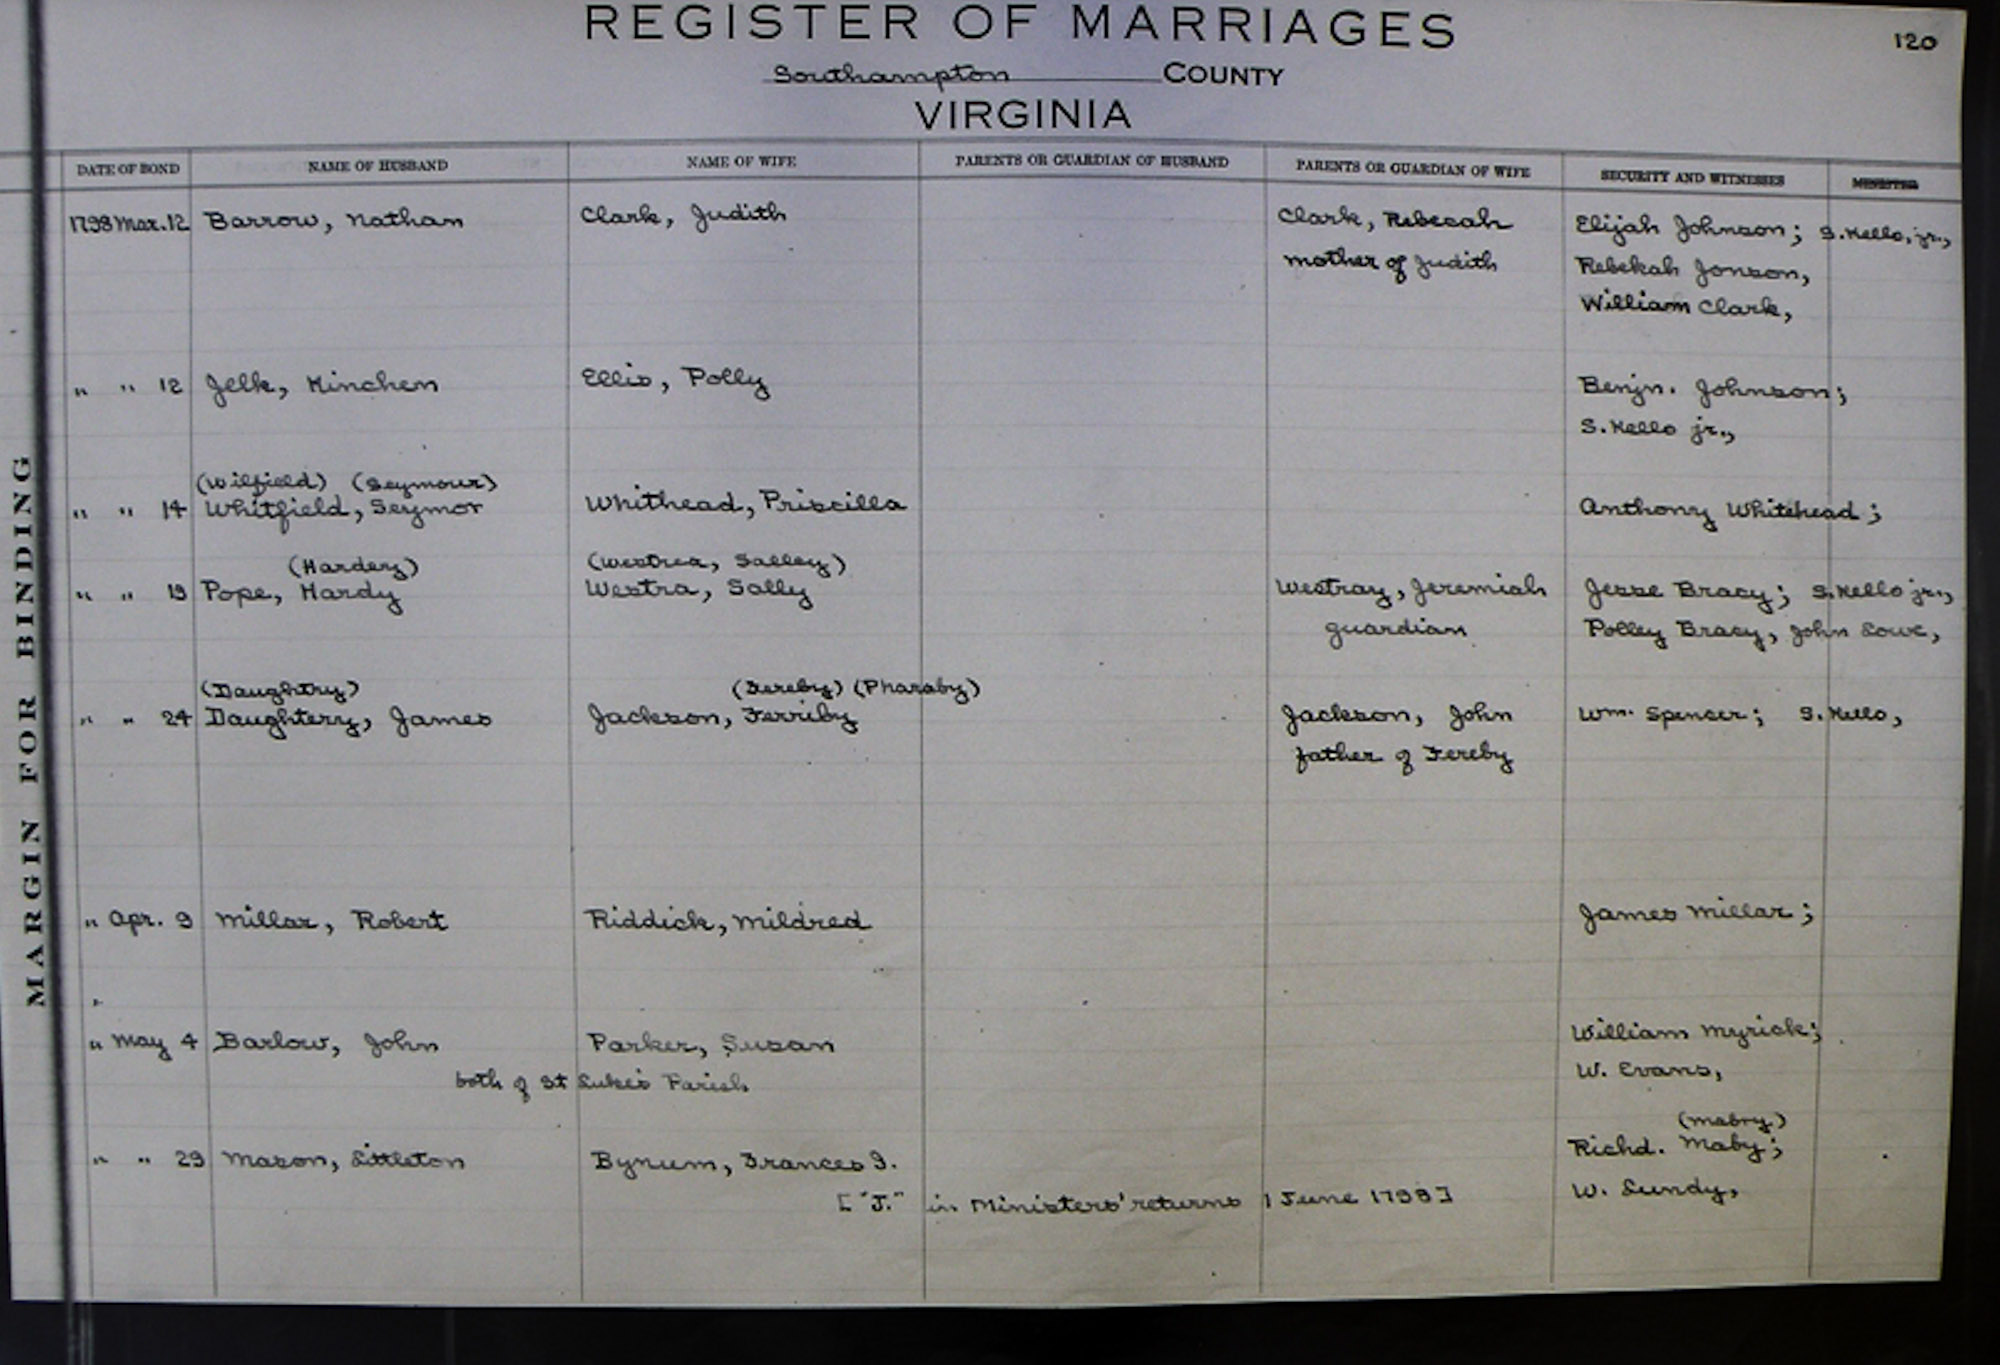 REGISTER OF MARRIAGES
120
Southampton COUNTY
VIRGINIA
MARGIN FOR BINDING
DATE OF BOND NAME OF HUSBAND NAME OF WIFE PARENTS OR GUARDIAN OF HUSBAND PARENTS OR GUARDIAN OF WIFE SECURITY AND WITNESSES MINISTER
1798 Mar. 12 Barrow, Nathan Clark, Judith Clark, Rebecah Elijah Johnson; S. Kello, jr.,
mother of Judith Rebekah Jonson,
William Clark,
" " 12 Jelk, Kinchen Ellis, Polly Benjn. Johnson;
S. Kello jr.,
(Wilfield) (Seymour)
" " 14 Whitfield, Seymor Whithead, Priscilla Anthony Whitehead;
(Hardery) (Westrea, Salley)
" " 19 Pope, Hardy Westra, Sally Westray, Jeremiah Jesse Bracy; S. Kello jr.,
guardian Polley Bracy, John Lowe,
(Daughtry) (Fereby) (Pharaby)
" " 24 Daughtery, James Jackson, Ferriby Jackson, John Wm. Spencer; S. Kello,
father of Fereby
" Apr. 9 Millar, Robert Riddick, Mildred James Millar;
"
" May 4 Barlow, John Parker, Susan William Myrick;
both of St Luke's Parish W. Evans,
(Mabry)
" " 29 Mason, Littleton Bynum, Frances I. Richd. Maby;
["J." in Ministers' returns 1 June 1798] W. Lundy,